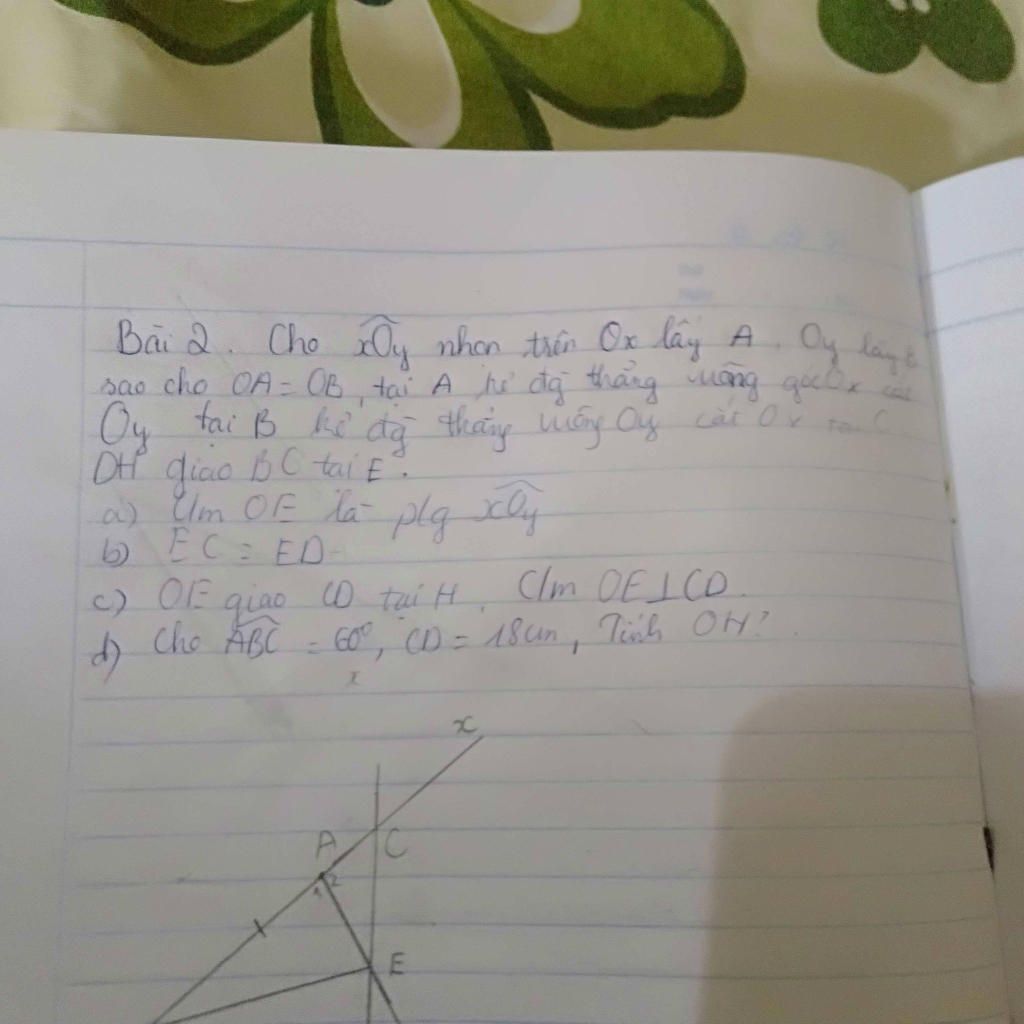 Bài 2. Cho xOy nhọn trên Ox lấy A. Oy lấy B
sao cho OA = OB, tại A kẻ đg thẳng vuông góc Ox cắt
Oy tại B kẻ đg thẳng vuông Oy cắt Ox tại C
giao BC tại E.
a) C/m OE là p/g xOy
b) EC = ED
c) OE giao CD tại H. C/m OE ⊥ CD.
d) Cho ABC = 60°, CD = 18cm, Tính OH?
x
x
A
C
1 2
E